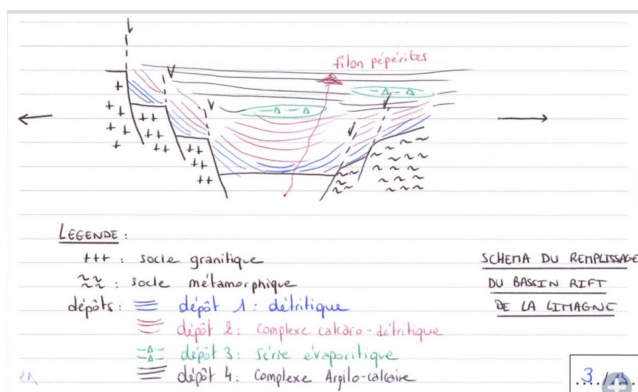 filon pépérites
LEGENDE :
+++ : socle granitique
~~ : socle métamorphique
dépôts : dépôt 1 : détritique
dépôt 2 : Complexe calcaro-détritique
dépôt 3 : Série évaporitique
dépôt 4 : Complexe Argilo-calcaire
SCHEMA DU REMPLISSAGE
DU BASSIN RIFT
DE LA LIMAGNE
3